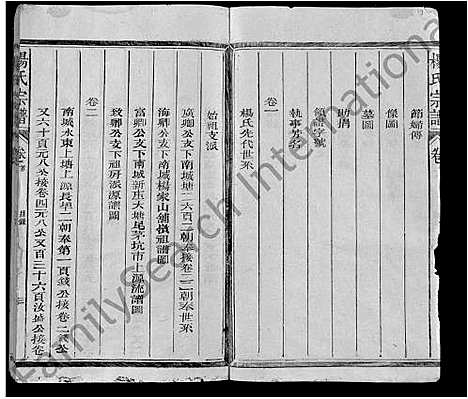 楊氏宗譜
卷
節婦傳
像圖
墓圖
助捐
領譜字號
執事芳名
卷一
楊氏先代世系
始祖支派
廣卿公支下南城塘二頁二朝奉接卷二二朝奉世系
海卿公支下南城楊家山舖嶺祖譜圖
富卿公支下南城新庄大塘尾茅坑市上源流譜圖
致卿公支下祖房派源譜圖
卷二
南城永東上塘上源長早二朝奉第一頁錢公接卷二錢公
又六十頁元八公接卷四元八公又百三十六頁汝城公接卷
楊氏宗譜
卷首
目錄
三
FamilySearch International